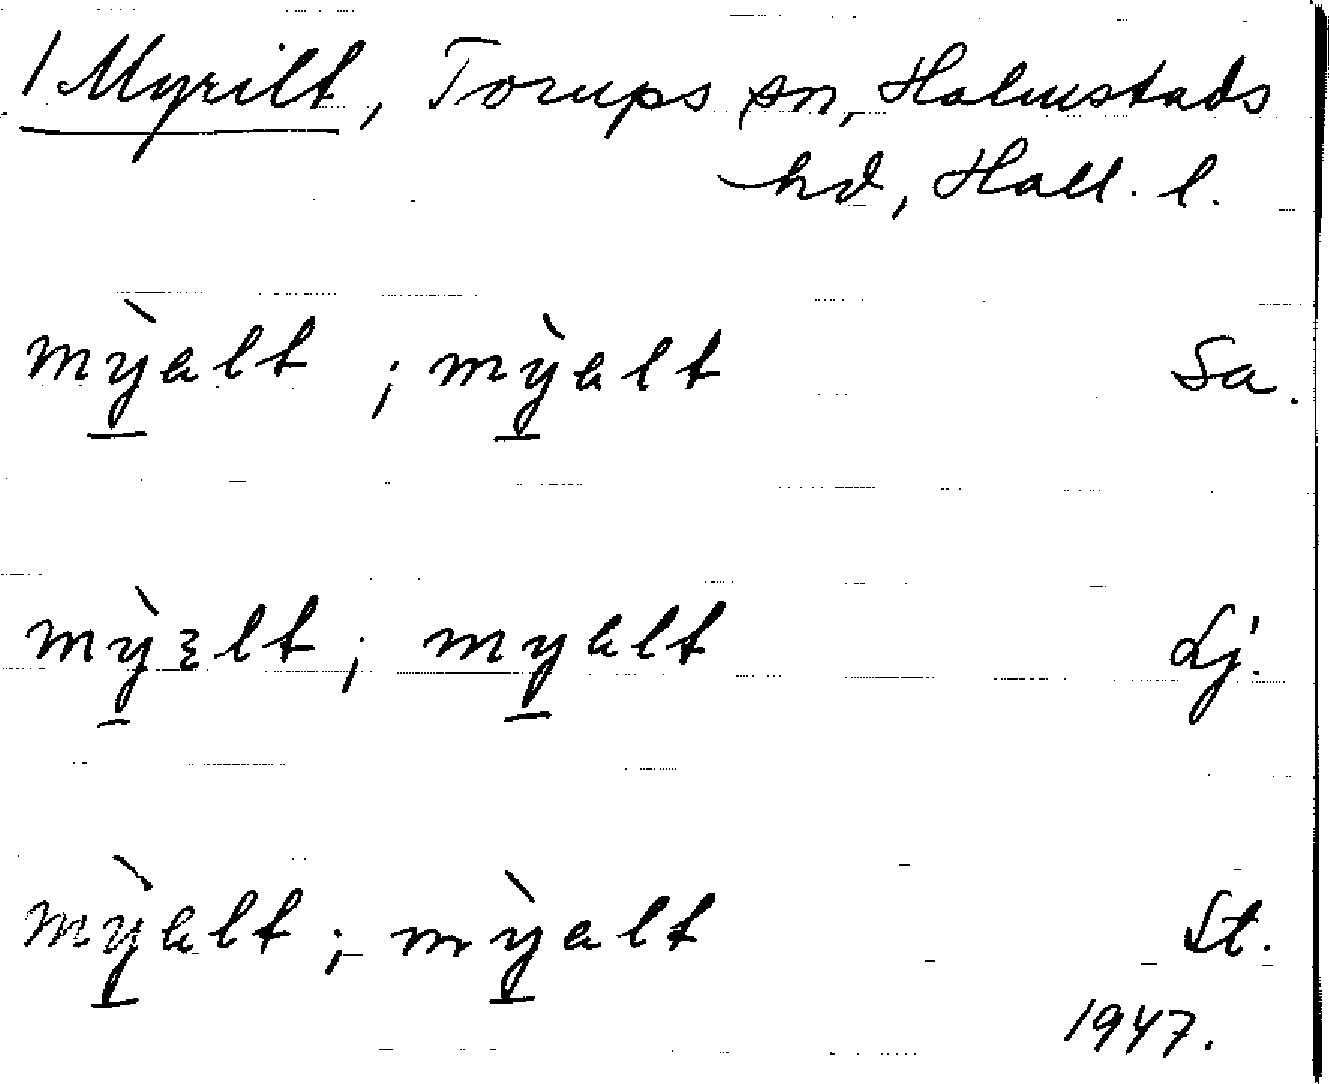 1 Myrilt, Torups sn, Halmstads
hd, Hall. l.
mỳalt ; mỳalt Sa.
mỳɛlt ; myalt Lj.
mỳalt ; mỳalt St.
1947.